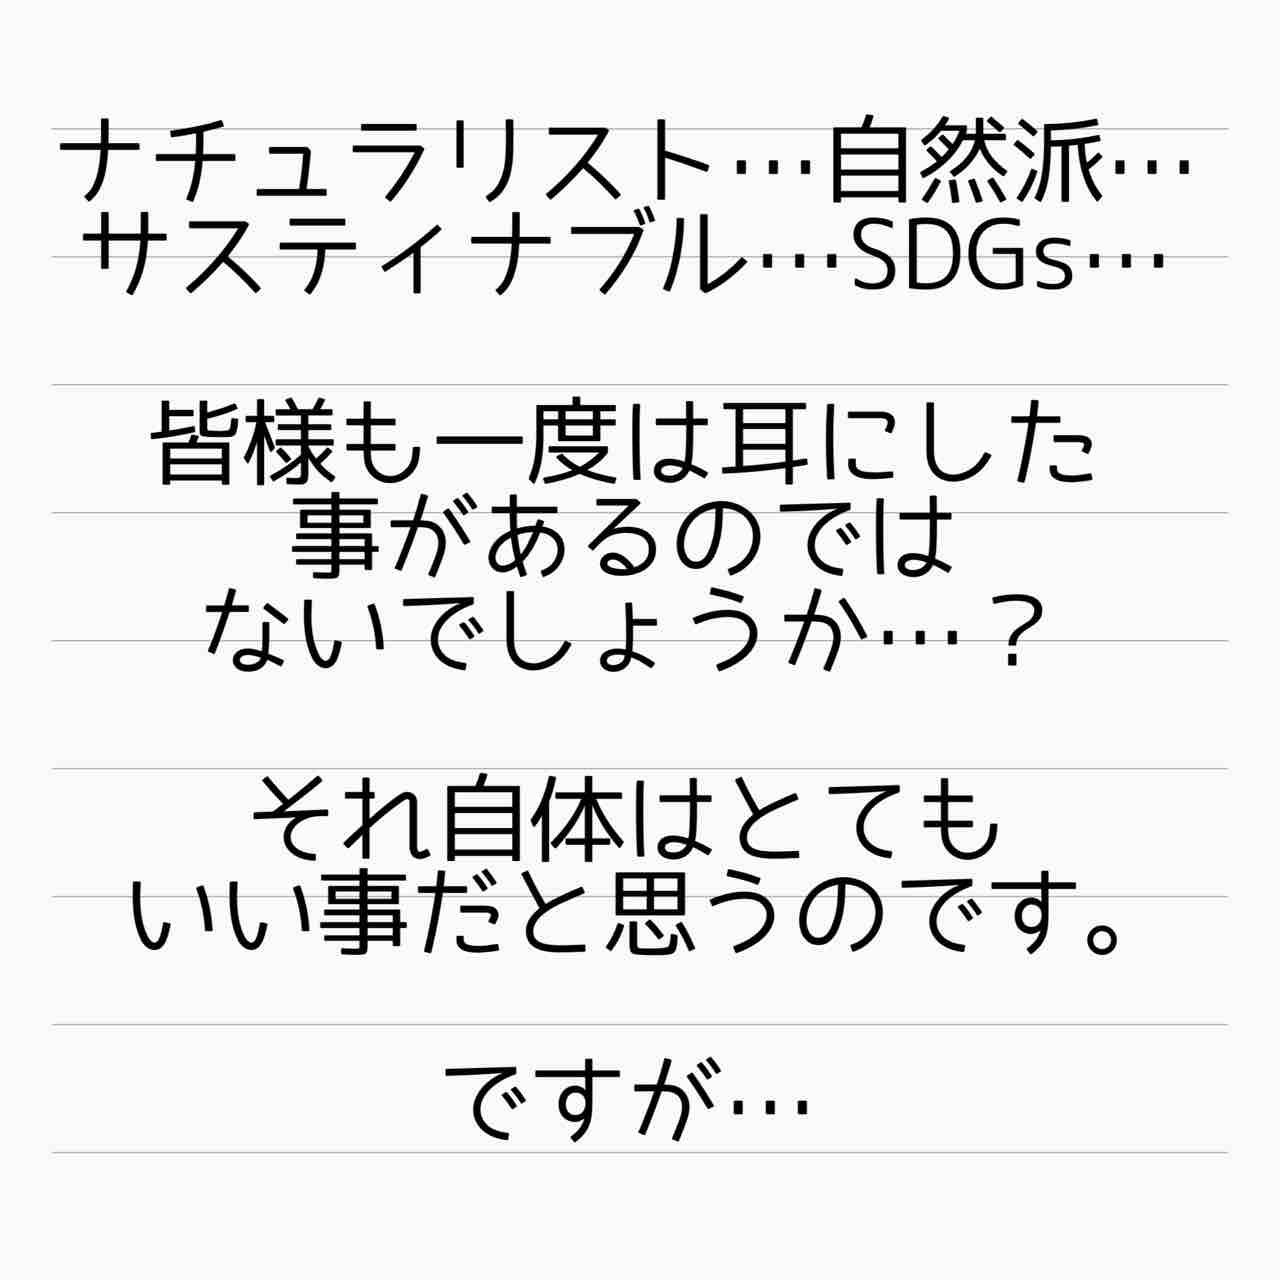 ナチュラリスト…自然派…
サスティナブル…SDGs…
皆様も一度は耳にした
事があるのでは
ないでしょうか…？
それ自体はとても
いい事だと思うのです。
ですが…